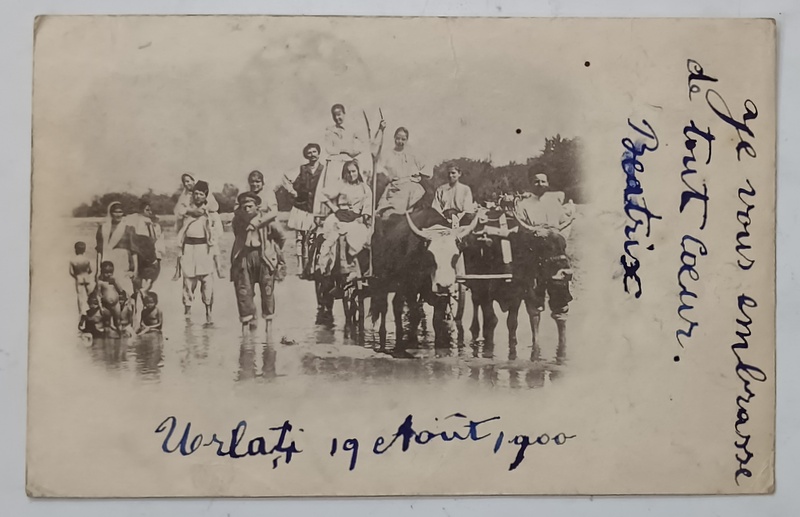 Je vous embrasse
de tout Cœur.
Beatrix
Urlați 19 Août 1900